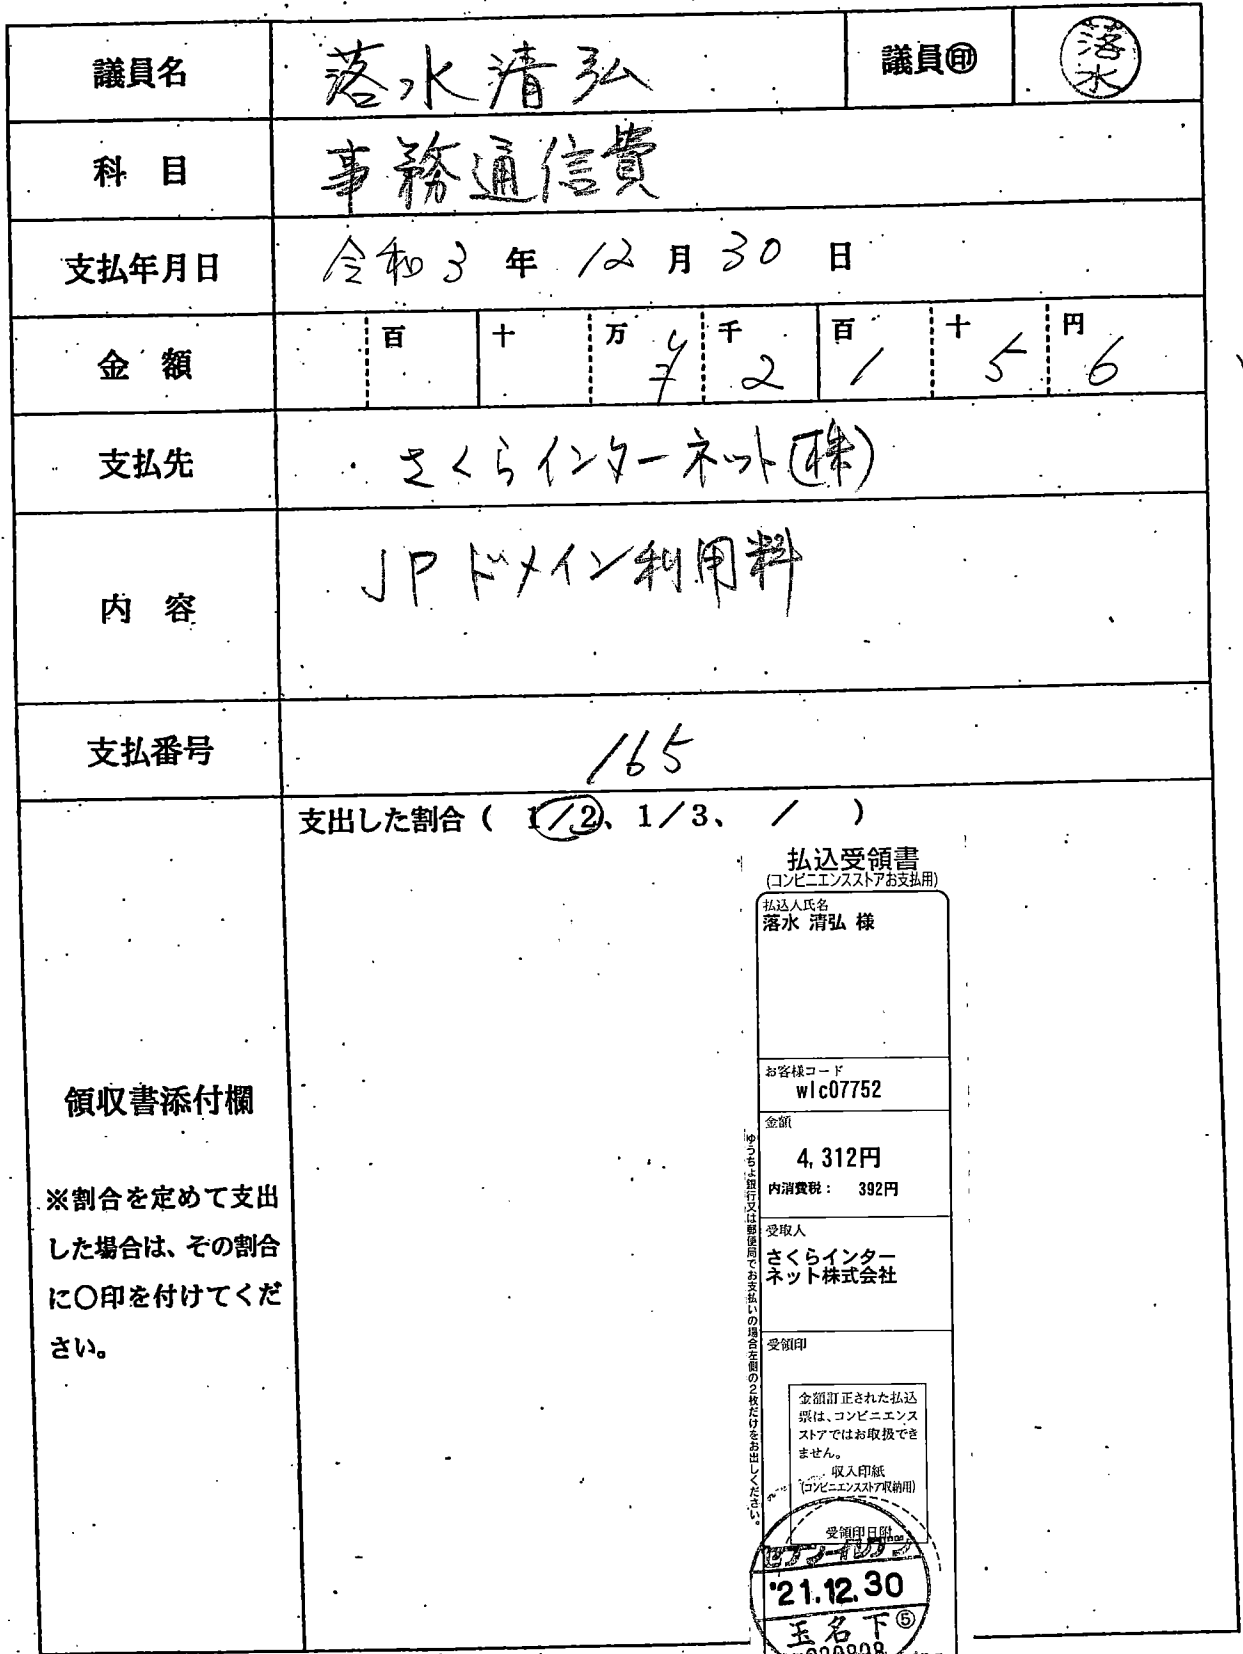 議員名 落水清弘 議員㊞ 落水
科 目 事務通信費
支払年月日 令和3年12月30日
金 額 百 十 万 千 百 十 円
¥ 2 1 5 6
支払先 さくらインターネット(株)
内 容 JPドメイン利用料
支払番号 165
支出した割合 ( 1/2、1/3、 / )
領収書添付欄
※割合を定めて支出
した場合は、その割合
に〇印を付けてくだ
さい。
払込受領書
(コンビニエンスストアお支払用)
払込人氏名
落水 清弘 様
お客様コード
wlc07752
金額
4,312円
内消費税: 392円
受取人
さくらインター
ネット株式会社
受領印
金額訂正された払込
票は、コンビニエンス
ストアではお取扱でき
ません。
収入印紙
(コンビニエンスストア収納用)
受領印日附
セブン-イレブン
'21.12.30
玉名下⑤
ゆうちょ銀行又は郵便局でお支払いの場合左側の2枚だけをお出しください。